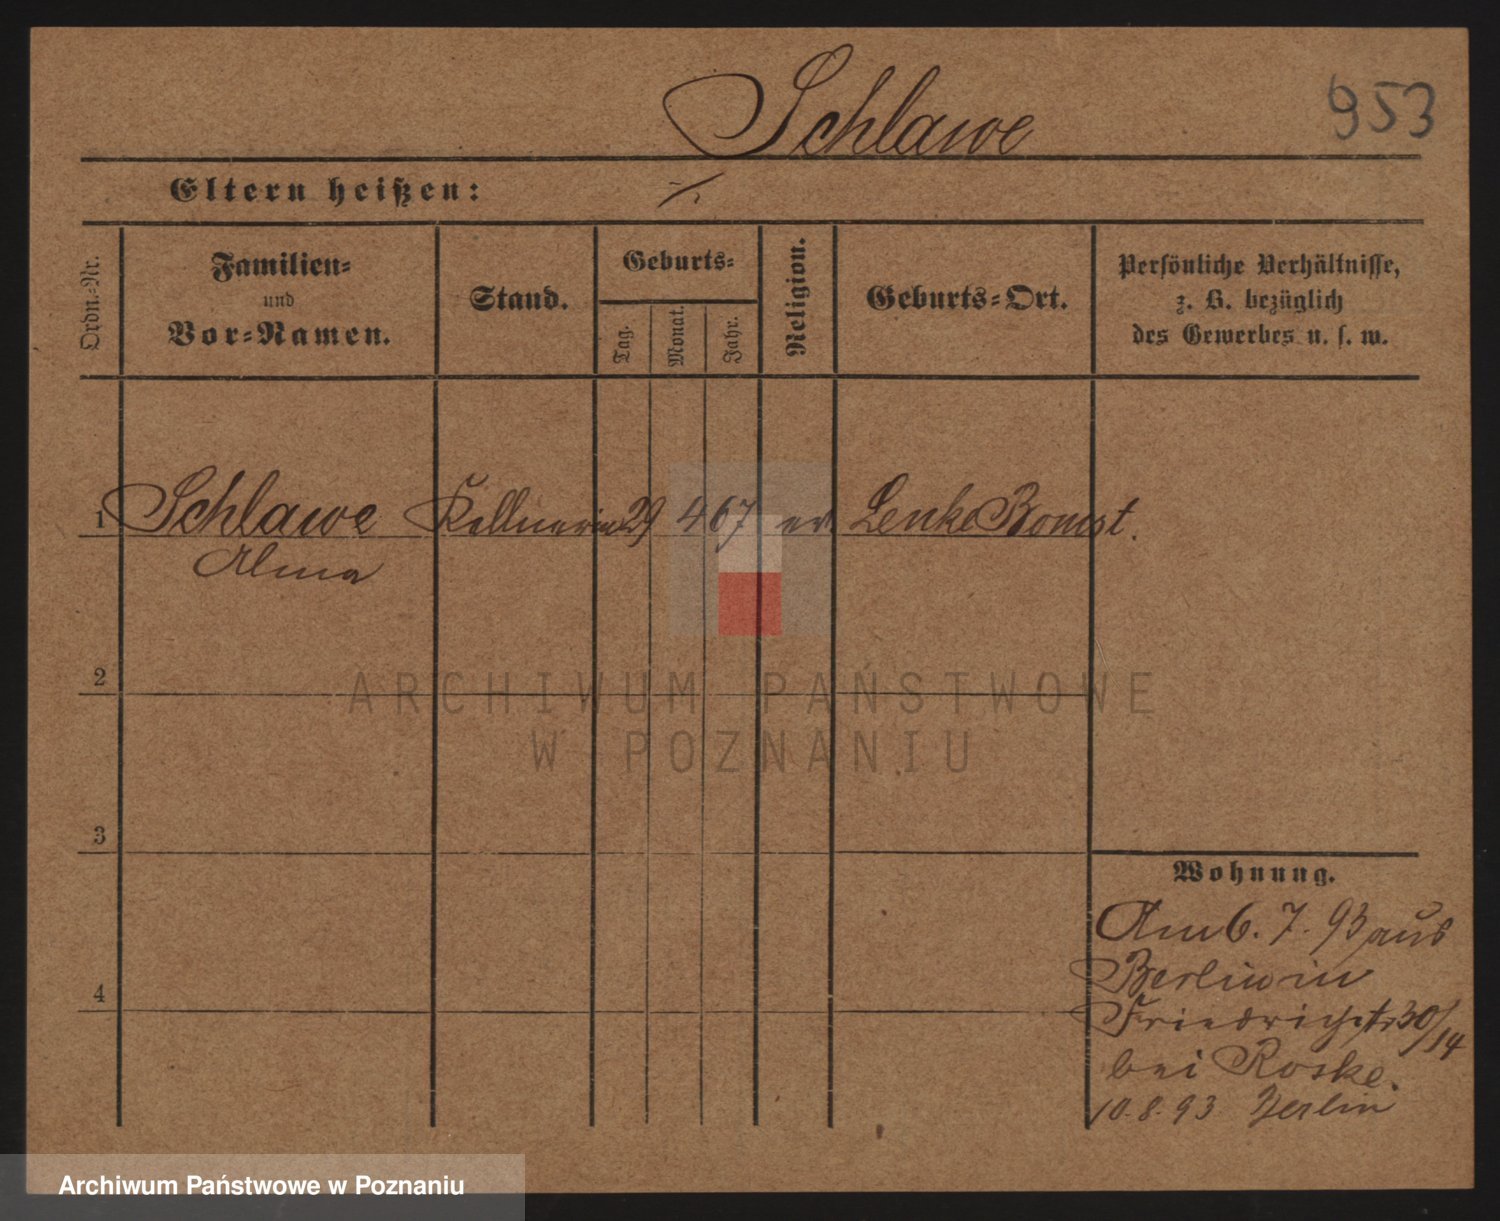 Schlawe
953
Eltern heißen:
Ordn.-Nr.
Familien-
und
Vor-Namen.
Stand.
Geburts-
Tag.
Monat.
Jahr.
Religion.
Geburts-Ort.
Persönliche Verhältnisse,
z. B. bezüglich
des Gewerbes u. s. w.
1 Schlawe Kellnerin 29 4 67 ev Lenke Bomst.
Alma
2
ARCHIWUM PAŃSTWOWE
W POZNANIU
3
Wohnung.
Am 6. 7. 93 aus
Berlin in
4
Friedrichstr 30/14
bei Roske.
10.8.93 Berlin
Archiwum Państwowe w Poznaniu